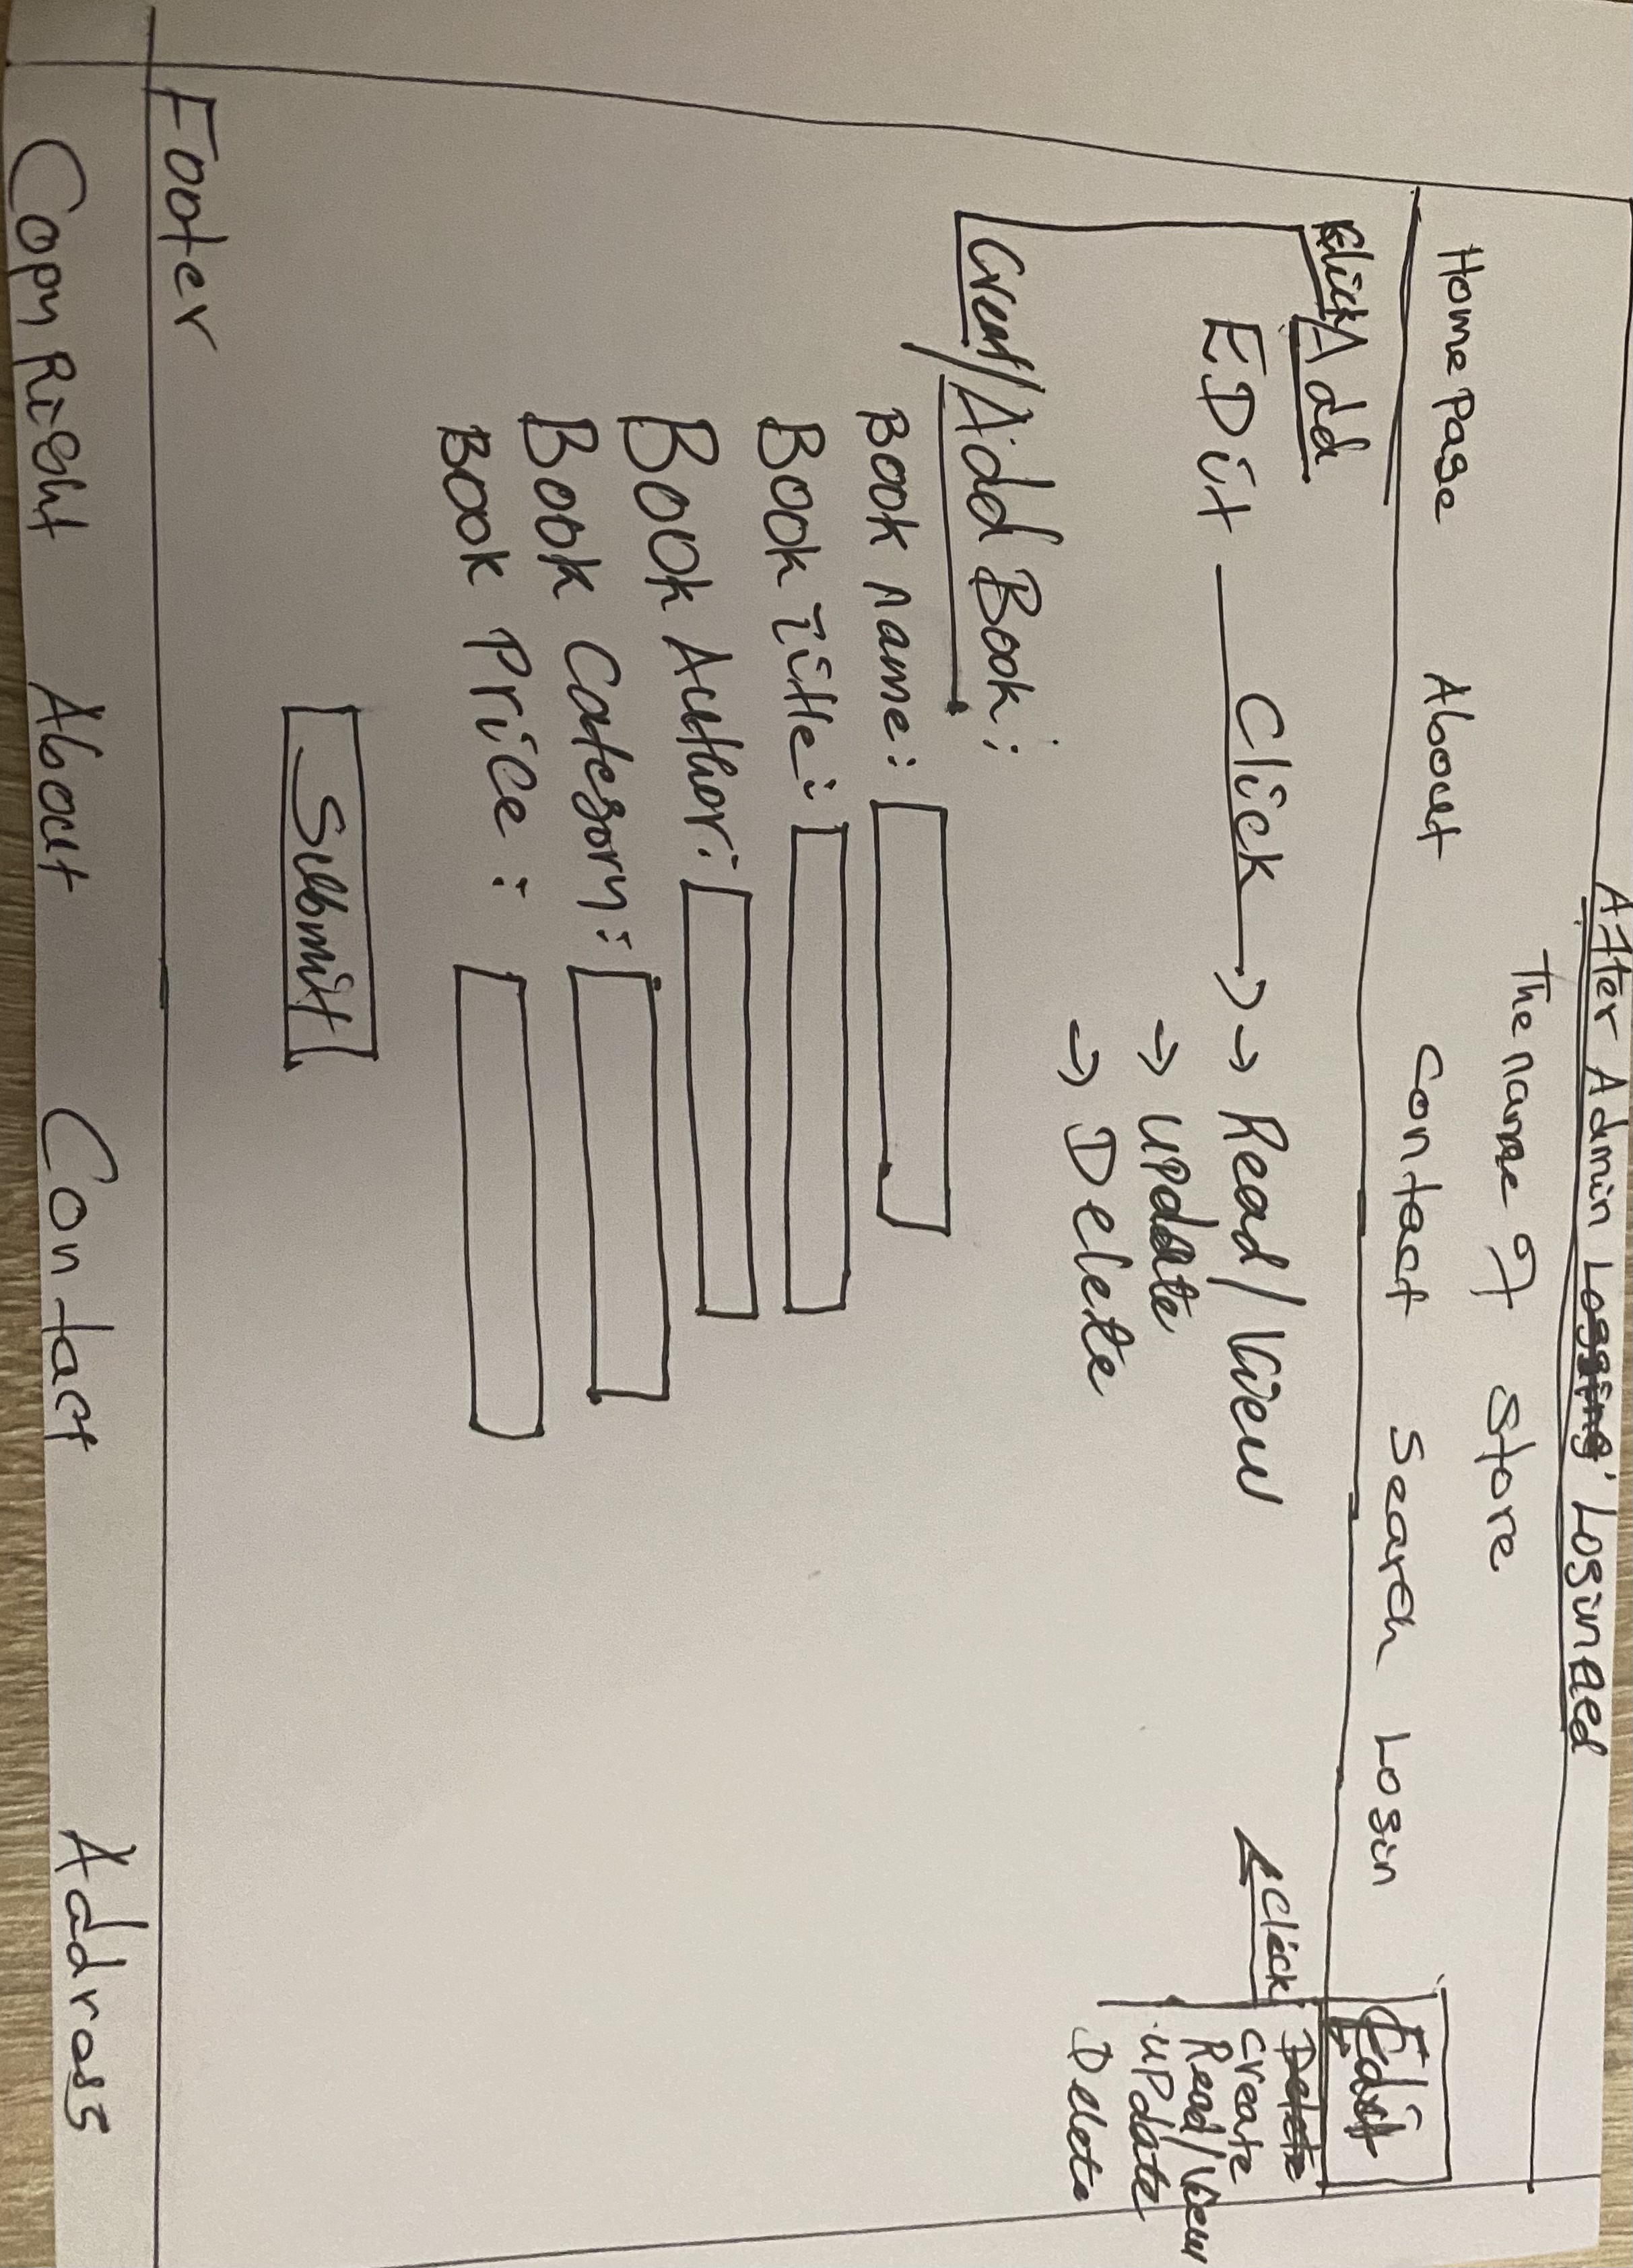 After Admin Logging' Loginned
The name of Store
Home Page About Contact Search Login Edit
Click/Add
Delete
EDit Click → → Read/View
→ update
→ DElete
Click
create
Read/View
update
Delete
Creat/Add Book:
Book name:
Book Title:
Book Author:
Book Category:
Book Price:
Submit
Footer
CopyRight About Contact Adrass